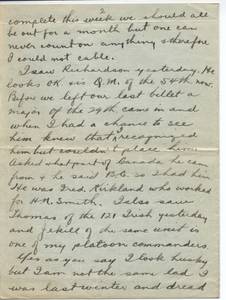 2
complete this week we should all
be out for a month but one can
never count on anything & therefore
I could not cable.
I saw Richardson yesterday. He
looks OK. is Q.M. of the 54th now.
Before we left our last billet a
major of the 29th came in and
when I had a chance to see
him knew that I recognized
him but couldn't place him.
Asked what part of Canada he came
from & he said B.C. so I had him
He was Fred. Kirkland who worked
for H.N. Smith. I also saw
Thomas of the 121 Irish yesterday
and Jekill of the same unit is
one of my platoon commanders.
Yes as you say I look husky
but I am not the same lad I
was last winter and dread